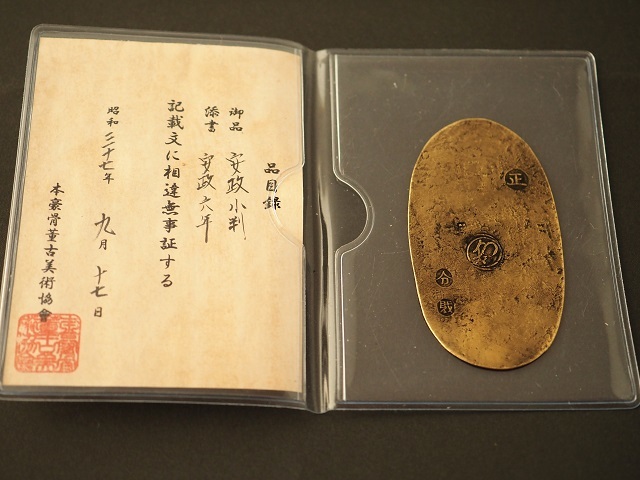 品目録
御品 安政小判
添書 安政六年
記載文に相違無事証する
昭和二十七年 九月 十七日
本豪骨董古美術協會
正
分
戝